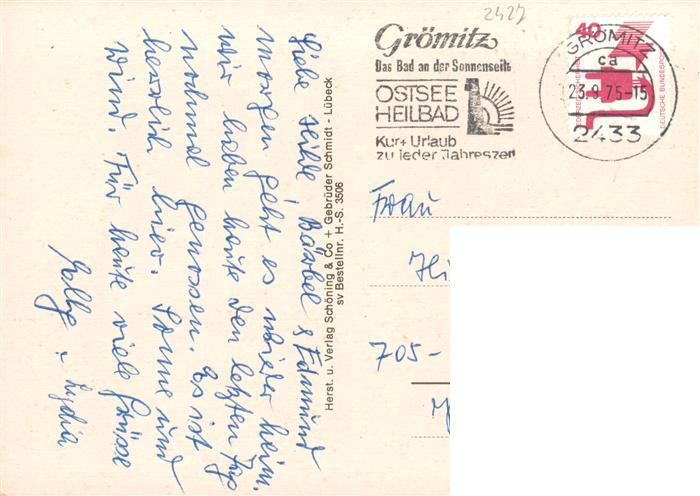 Liebe Hilde, Bärbel & Edmund
morgen geht es wieder heim.
wir haben heute den letzten Tag
nochmal genossen. Es ist
herrlich hier. Sonne und
Wind. Für heute viele Grüsse
Lydia
Herst. u. Verlag Schöning & Co + Gebrüder Schmidt - Lübeck
sv Bestellnr. H.-S. 3506
2427
Grömitz
Das Bad an der Sonnenseite
OSTSEE
HEILBAD
Kur + Urlaub
zu jeder Jahreszeit
40
DEUTSCHE BUNDESPOST
GRÖMITZ
ca
23.9.75-15
2433
Frau
Hi
705-